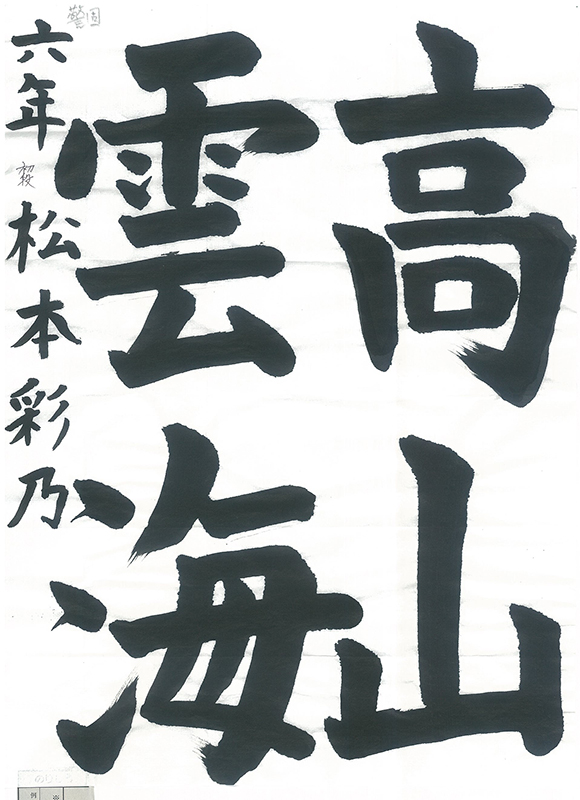 高山
雲海
六年 松本彩乃